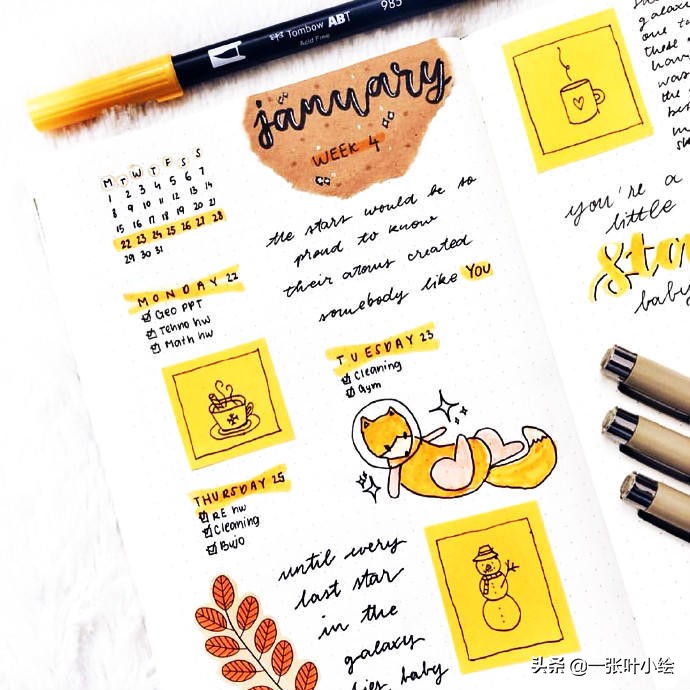 Tombow ABT 985
Acid Free
january
WEEK 4
M T W T F S S
1 2 3 4 5 6 7
8 9 10 11 12 13 14
15 16 17 18 19 20 21
22 23 24 25 26 27 28
29 30 31
the stars would be so
proud to know
their atoms created
somebody like YOU
MONDAY 22
Geo PPT
Tehno hw
Math hw
TUESDAY 23
Cleaning
Gym
THURSDAY 25
RE hw
Cleaning
Bujo
until every
last star
in the
galaxy
dies, baby
galaxy
one
these
you're a
little
baby
头条 @一张叶小绘